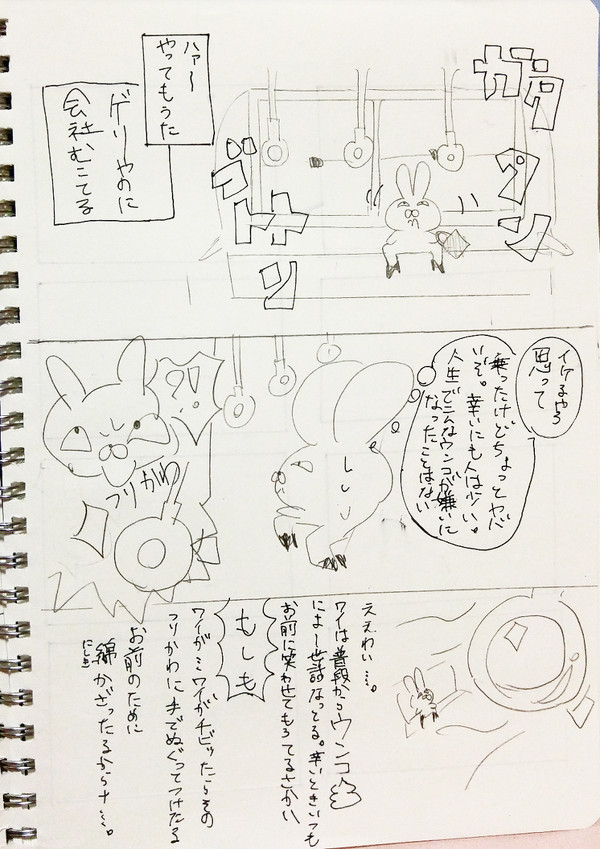 ガタン
ゴトン
ハァ〜
やってもうた
ゲリやのに
会社むこてる
イケるやろ
思って
乗ったけどちょっとヤバ
いぞ。幸いにも人は少い。
人生でこんなウンコが嫌いに
なったことはない
?!
つりかわ
ええわい…。
ワイは普段からウンコ
にょ〜世話なってる。辛いときいつも
お前に笑わせてもろてるさかい、
もしも
ワイが…ワイがチビッたらその
つりかわにまでぬぐってつけたる
お前のために
錦かざったるからナ…。
にしき